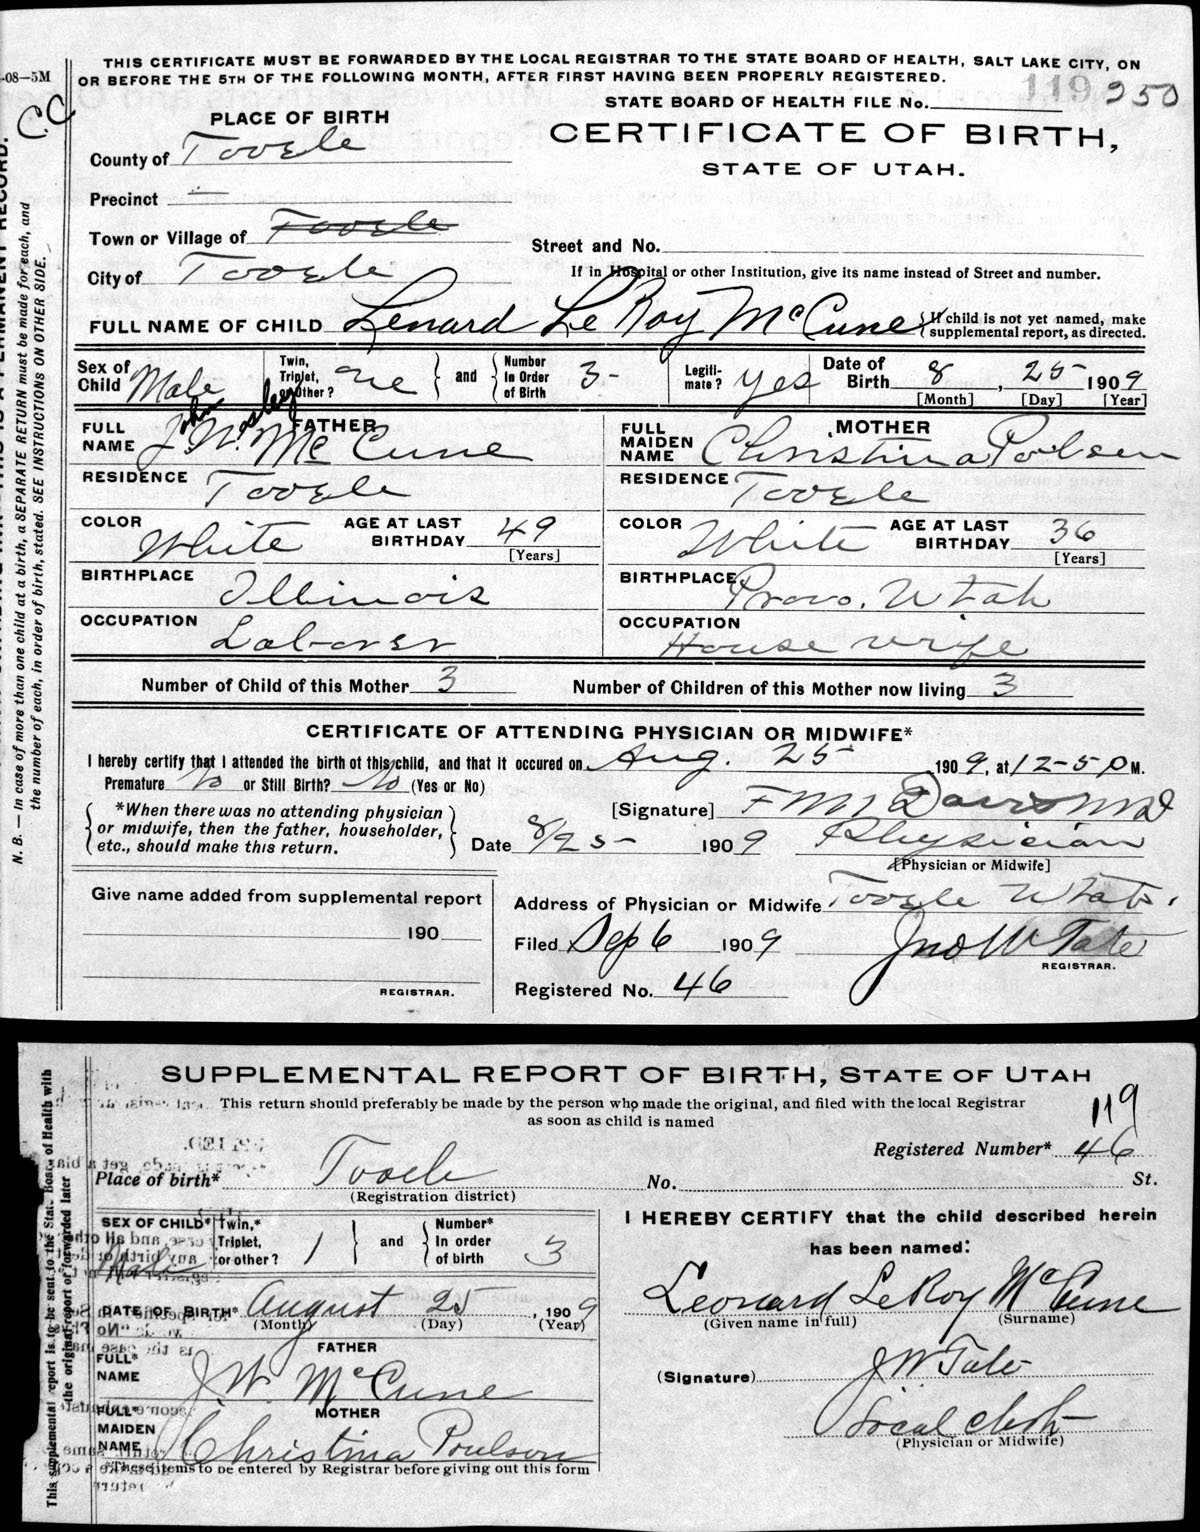 THIS CERTIFICATE MUST BE FORWARDED BY THE LOCAL REGISTRAR TO THE STATE BOARD OF HEALTH, SALT LAKE CITY, ON
OR BEFORE THE 5TH OF THE FOLLOWING MONTH, AFTER FIRST HAVING BEEN PROPERLY REGISTERED.
-08—5M
C.C
STATE BOARD OF HEALTH FILE No. 119 250
PLACE OF BIRTH
CERTIFICATE OF BIRTH,
STATE OF UTAH.
County of Tooele
Precinct —
Town or Village of Tooele
Street and No.
City of Tooele
If in Hospital or other Institution, give its name instead of Street and number.
FULL NAME OF CHILD Lenard LeRoy McCune { If child is not yet named, make supplemental report, as directed.
Sex of Child Male Twin, Triplet, or Other? One and Number in Order of Birth 3- Legiti-mate? yes Date of Birth 8, 25 1909
[Month] [Day] [Year]
FATHER
FULL NAME John W. Wesley McCune
MOTHER
FULL MAIDEN NAME Christina Polsen
RESIDENCE Tooele
RESIDENCE Tooele
COLOR White AGE AT LAST BIRTHDAY 49 [Years]
COLOR White AGE AT LAST BIRTHDAY 36 [Years]
BIRTHPLACE Illinois
BIRTHPLACE Provo. Utah
OCCUPATION Laborer
OCCUPATION House wife
Number of Child of this Mother 3 Number of Children of this Mother now living 3
CERTIFICATE OF ATTENDING PHYSICIAN OR MIDWIFE*
I hereby certify that I attended the birth of this child, and that it occured on Aug. 25 1909, at 12-50 PM.
Premature No or Still Birth? No (Yes or No)
*When there was no attending physician or midwife, then the father, householder, etc., should make this return.
[Signature] F M Davis MD
Date 8/25- 1909 Physician
[Physician or Midwife]
Give name added from supplemental report
190
REGISTRAR.
Address of Physician or Midwife Tooele Utah.
Filed Sep 6 1909 Jno W Tate
REGISTRAR.
Registered No. 46
N. B. — In case of more than one child at a birth, a SEPARATE RETURN must be made for each, and
the number of each, in order of birth, stated. SEE INSTRUCTIONS ON OTHER SIDE.
SUPPLEMENTAL REPORT OF BIRTH, STATE OF UTAH
This return should preferably be made by the person who made the original, and filed with the local Registrar
as soon as child is named
119
Registered Number* 46
Place of birth* Tooele No. St.
(Registration district)
SEX OF CHILD* Male Twin,* Triplet, or other? 1 and Number* In order of birth 3
DATE OF BIRTH* August 25, 1909
(Month) (Day) (Year)
FATHER
FULL* NAME J W McCune
MOTHER
FULL* MAIDEN NAME Christina Poulson
*These items to be entered by Registrar before giving out this form
I HEREBY CERTIFY that the child described herein
has been named:
Leonard LeRoy McCune
(Given name in full) (Surname)
(Signature) J W Tate
Local
(Physician or Midwife)
This supplemental report is to be sent to the State Board of Health with
the original report or forwarded later